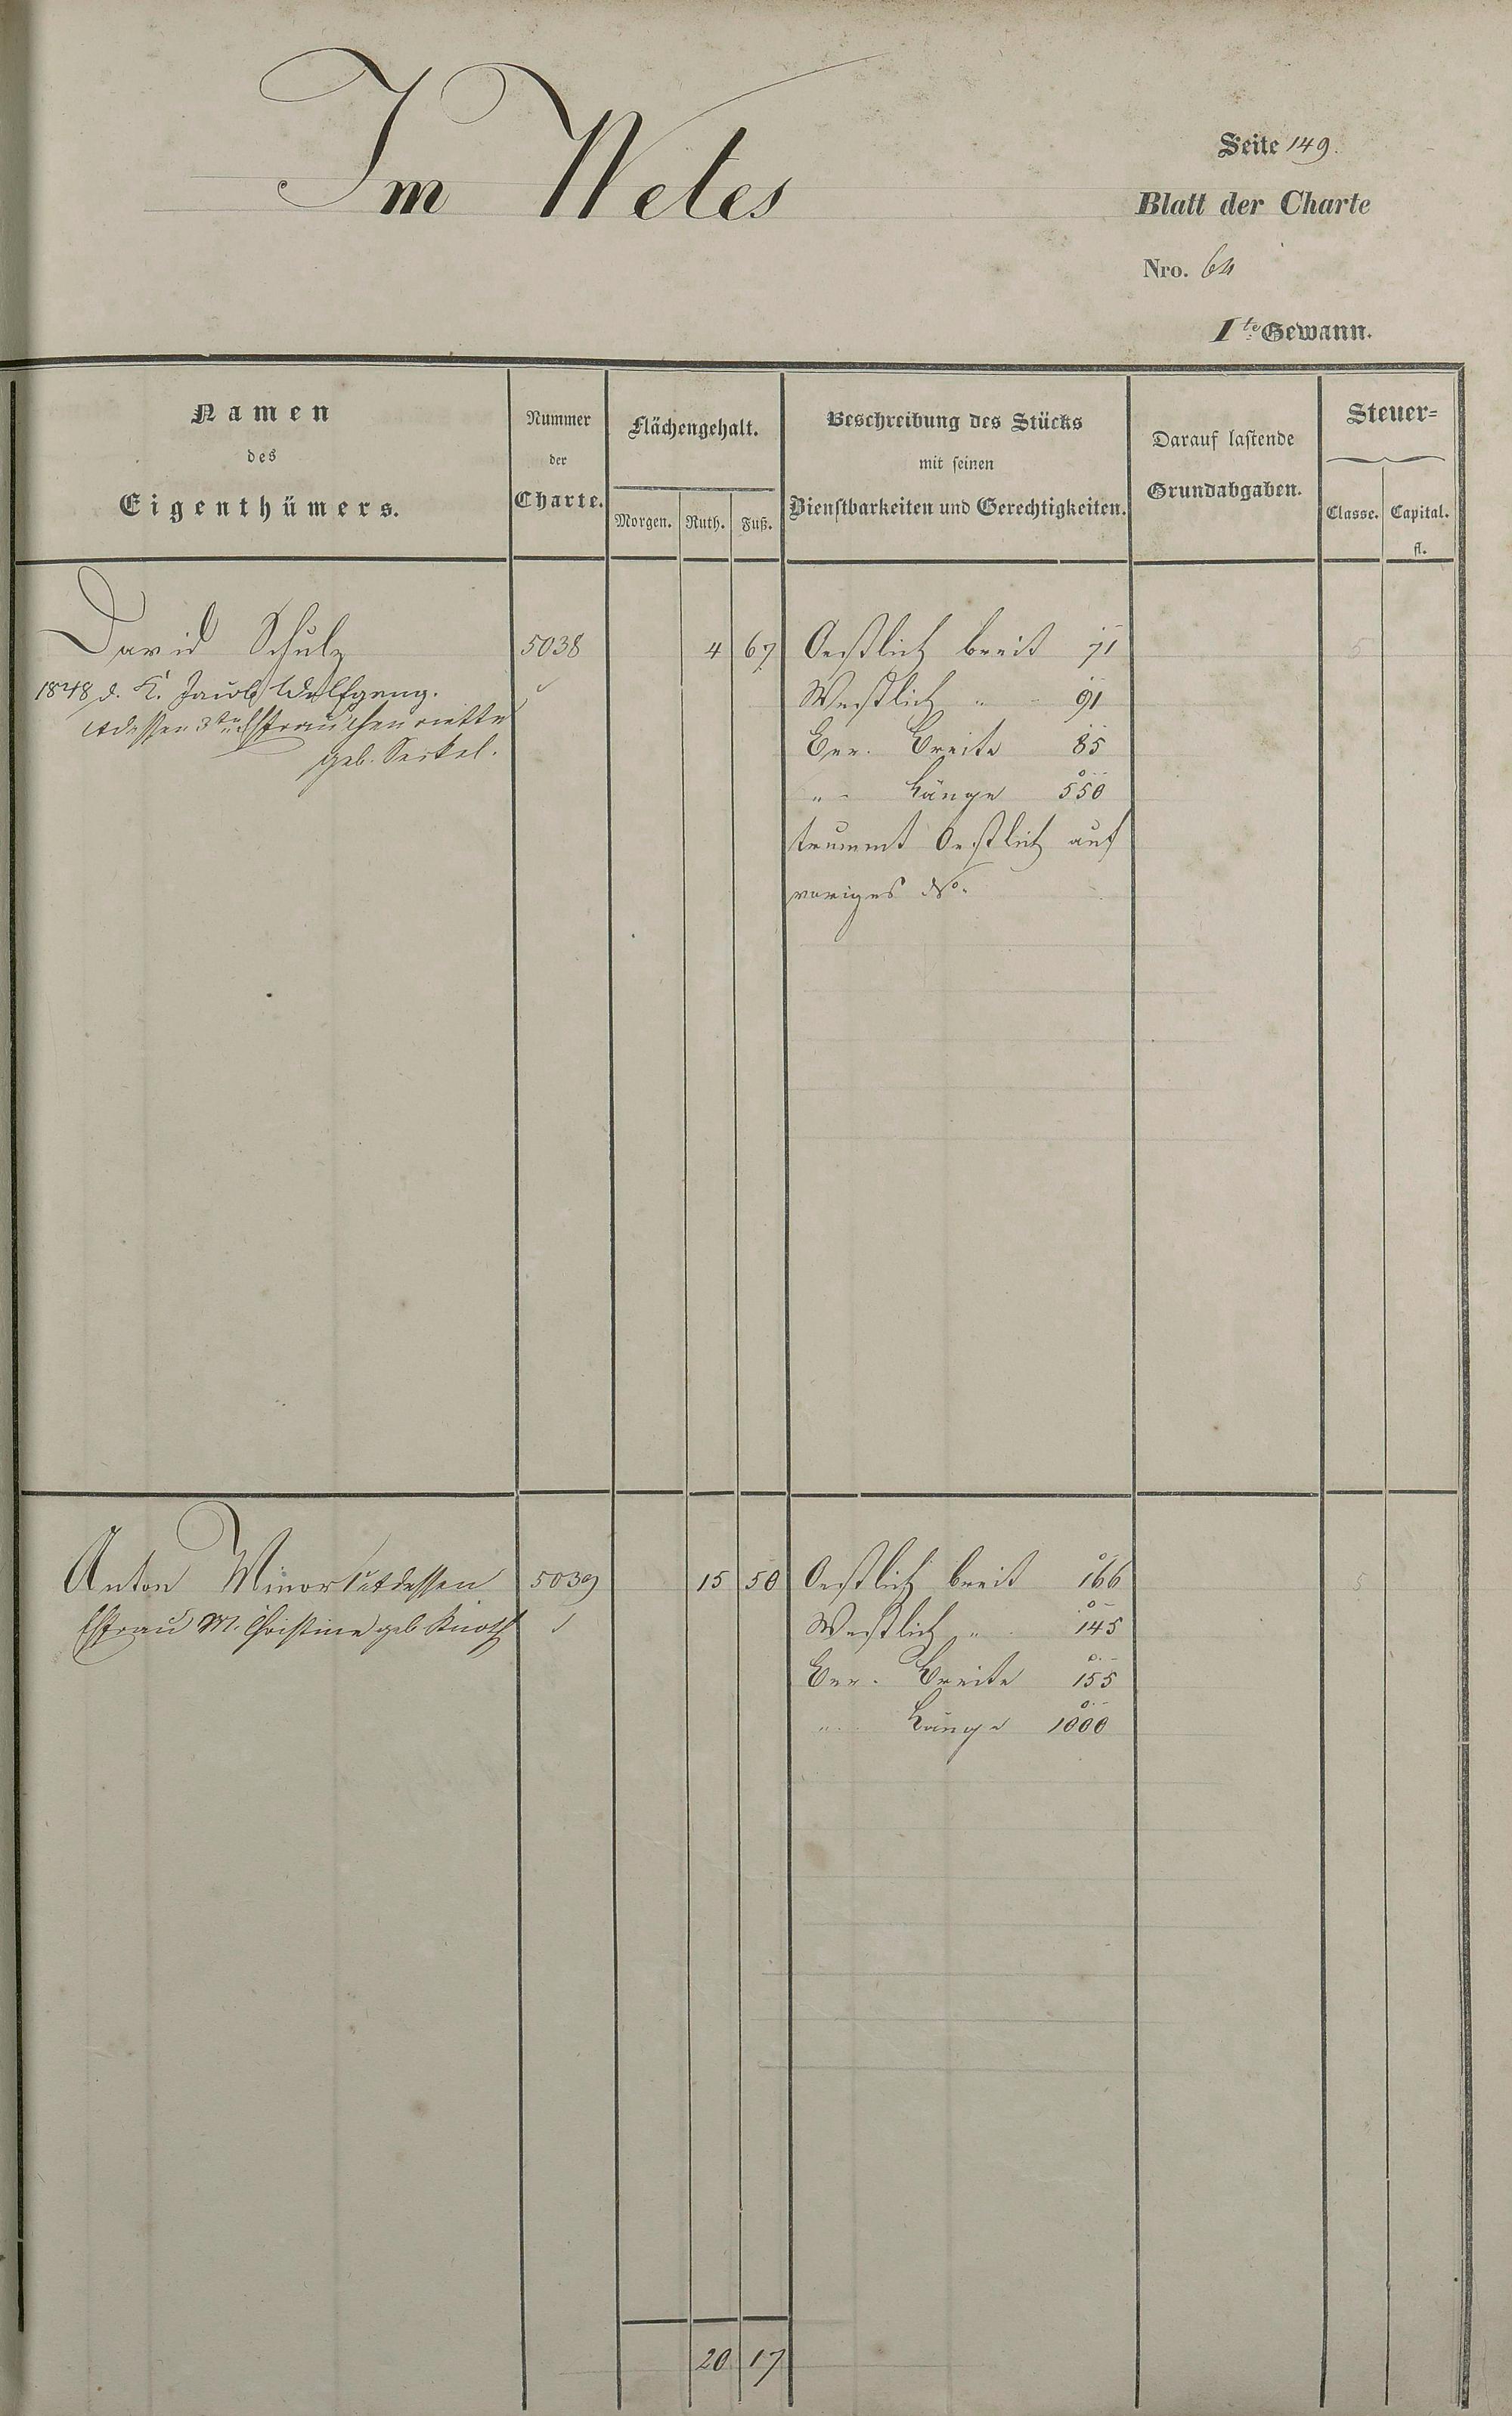 Im Wetes
Seite 149.
Blatt der Charte
Nro. 64
1te Gewann.
Namen
des
Eigenthümers.
Nummer
der
Charte.
Flächengehalt.
Morgen. Ruth. Fuß.
Beschreibung des Stücks
mit seinen
Dienstbarkeiten und Gerechtigkeiten.
Darauf lastende
Grundabgaben.
Steuer=
Classe. Capital.
fl.
David Schulz 5038 4 67 Oestlich breit 71 5
1848 d. K. Jacob Wolfgang. Westlich " 91
et dessen 3te Ehefrau Henriette Ber. Breite 85
geb. Seckel.
" Länge 550
krummt Oestlich auf
voriges No.
Anton Minor I et dessen 5039 15 50 Oestlich breit 166 5
Ehfrau M. Christine geb Knoth Westlich " 145
Ber. Breite 155
" Länge 1000
20 17